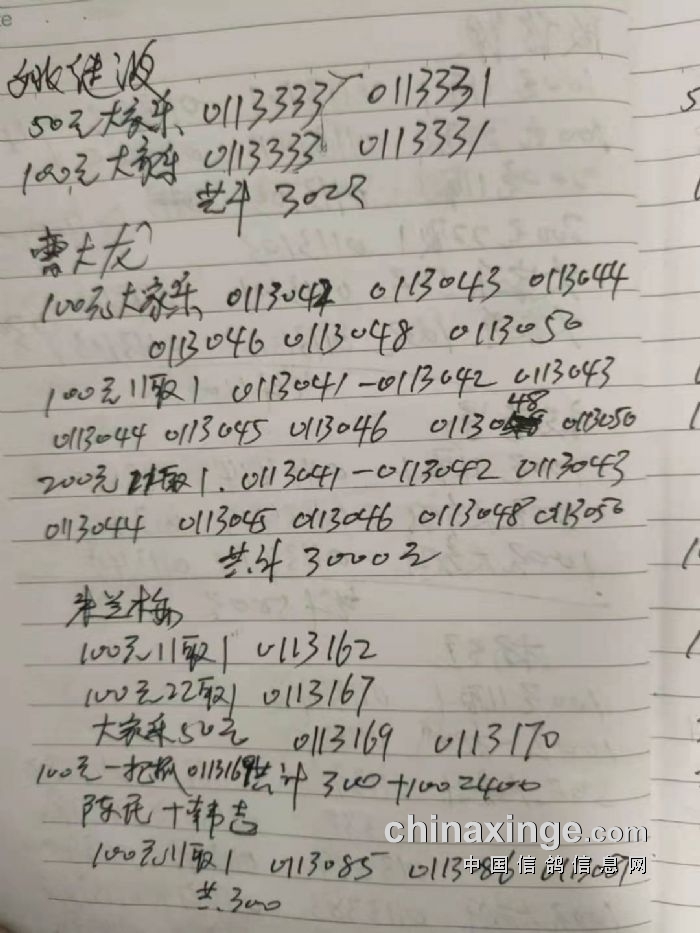 姚继波
50元大家乐、0113333 0113331
100元大家乐 0113333 0113331
共计300元
曹大龙
100元大家乐 0113042 0113043 0113044
0113046 0113048 0113050
100元11取1 0113041-0113042 0113043
48
0113044 0113045 0113046 01130 0113050
200元 取1.0113041-0113042 0113043
0113044 0113045 0113046 0113048 0113050
共计3000元
朱兰梅
100元11取1 0113162
100元22取1 0113167
大家乐50元 0113169 0113170
100元一把抓0113169共计300+100=400
陈民+韩志
100元11取1 0113085 0113086 011308
共300
chinaxinge.com
中国信鸽信息网